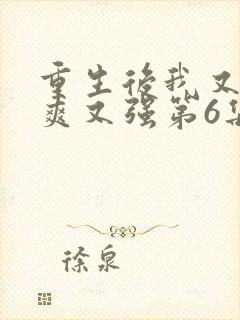 重生后我又
爽又强第6集
徐泉